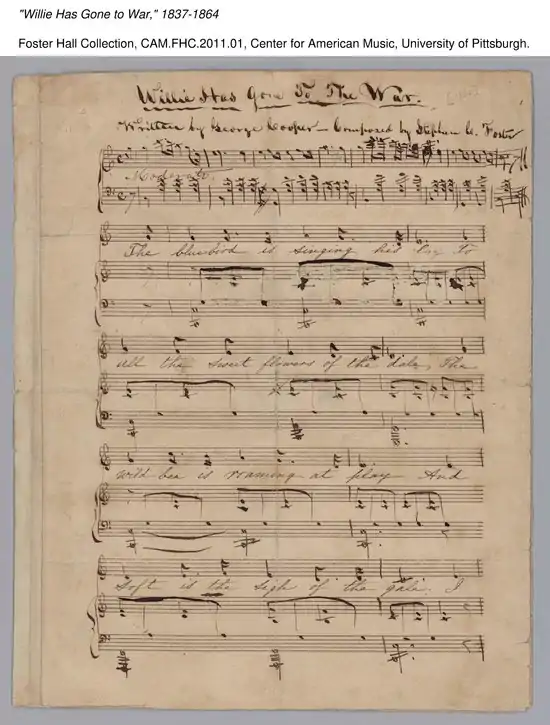 "Willie Has Gone to War," 1837-1864
Foster Hall Collection, CAM.FHC.2011.01, Center for American Music, University of Pittsburgh.
Willie Has Gone To The War.
Written by George Cooper — Composed by Stephen C. Foster
Moderato
The bluebird is singing his lay To
all the sweet flowers of the dale, The
wild bee is roaming at play And
Soft is the sigh of the gale. I